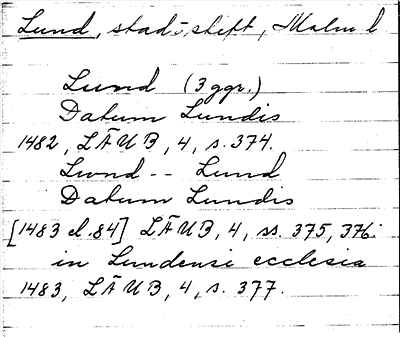 Lund, stad i stift, Malm l
Lund (3 ggr.)
Datum Lundis
1482, LÄUB, 4, s. 374.
Lund -- Lund
Datum Lundis
[1483 el. 84] LÄUB, 4, ss. 375, 376.
in Lundensi ecclesia
1483, LÄUB, 4, s. 377.